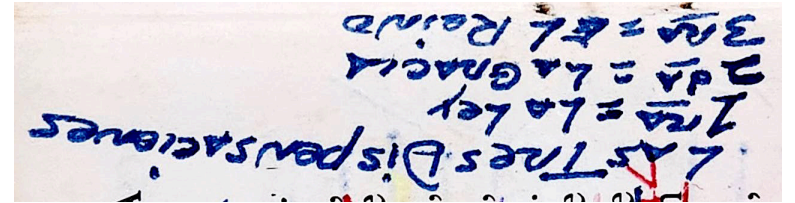 LAS TRES DispensAciones
1RA = LA Ley
2dA = LA GRACIA
3RA = EL Reino